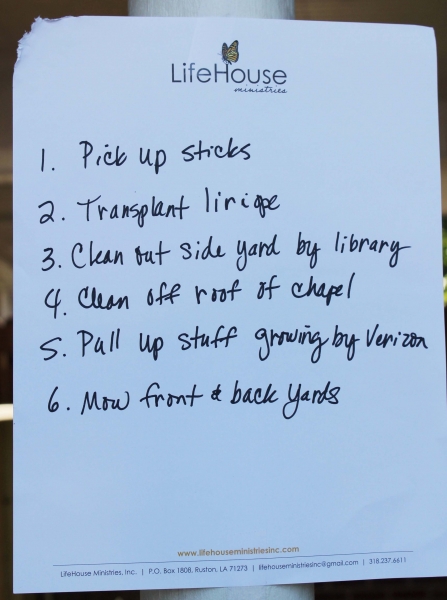 LifeHouse
ministries
1. Pick up sticks
2. Transplant liriope
3. Clean out side yard by library
4. Clean off roof of chapel
5. Pull up stuff growing by Verizon
6. Mow front & back yards
www.lifehouseministriesinc.com
LifeHouse Ministries, Inc. | P.O. Box 1808, Ruston, LA 71273 | lifehouseministriesinc@gmail.com | 318.237.6611